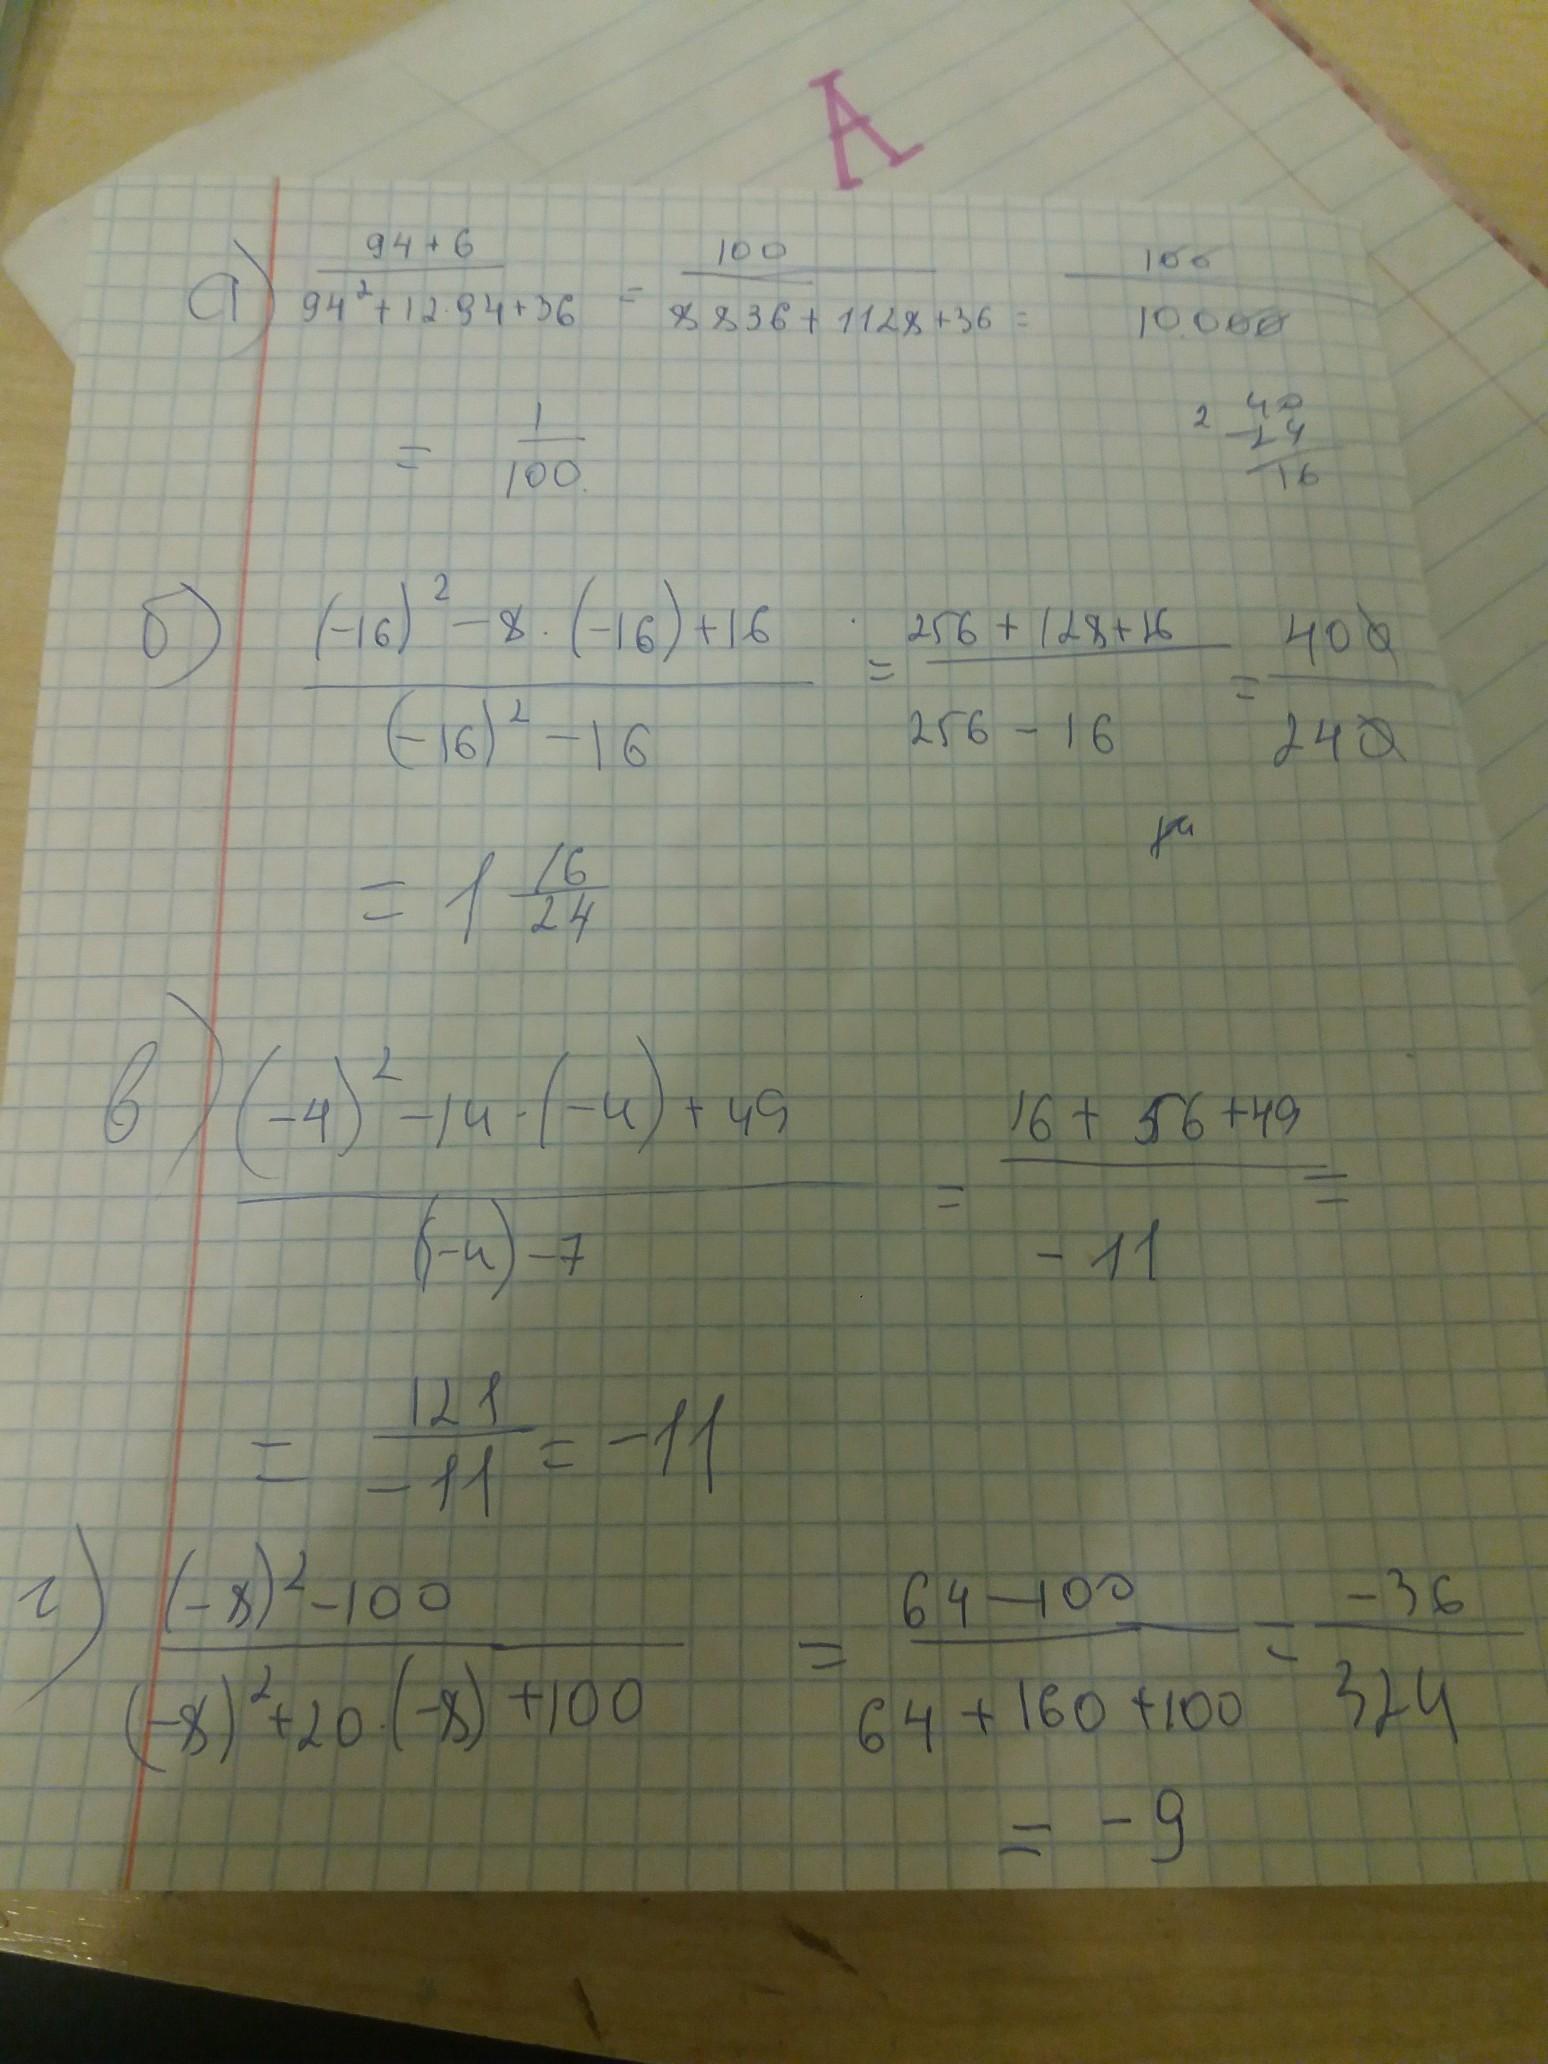 А
а) (94+6)/(94²+12·94+36) = 100/(8836+1128+36) = 100/10.000
= 1/100.
2 40
-24
16
б) ((-16)²-8·(-16)+16)/((-16)²-16) = (256+128+16)/(256-16) = 400/240
= 1 16/24
в) ((-4)²-14·(-4)+49)/((-4)-7) = (16+56+49)/(-11) =
= 121/(-11) = -11
г) ((-8)²-100)/((-8)²+20·(-8)+100) = (64-100)/(64+160+100) = (-36)/324
= -9